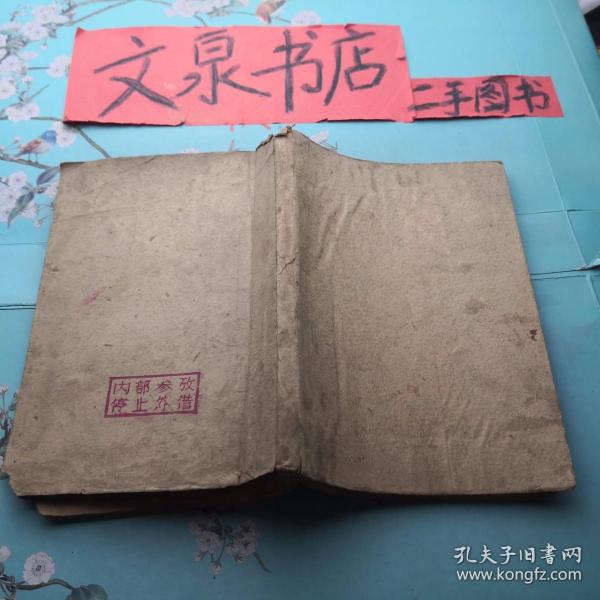 文泉书店
二手图书
内部参攷
停止外借
孔夫子旧书网
www.kongfz.com